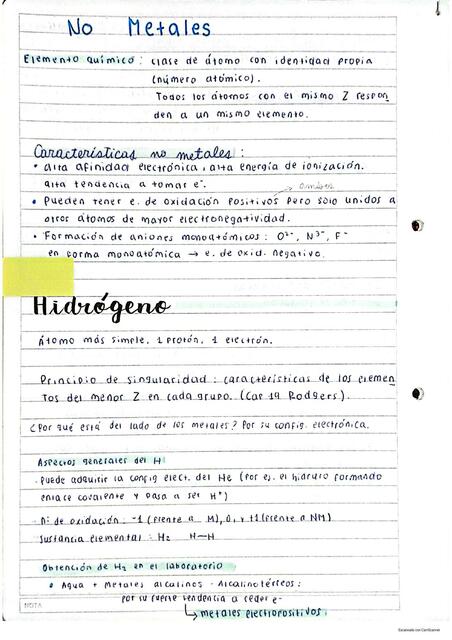 No Metales
Elemento químico : clase de átomo con identidad propia
(número atómico).
Todos los átomos con el mismo Z respon
den a un mismo elemento.
Características no metales :
• alta afinidad electrónica, alta energía de ionización.
alta tendencia a tomar e⁻.
• Pueden tener e. de oxidación positivos pero solo unidos a
otros átomos de mayor electronegatividad.
• Formación de aniones monoatómicos : O²⁻, N³⁻, F⁻
en forma monoatómica → e. de oxid. negativo.
Hidrógeno
Átomo más simple, 1 protón, 1 electrón.
Principio de singularidad : características de los elemen
tos del menor Z en cada grupo. (Cap 19 Rodgers).
¿Por qué está del lado de los metales? Por su config. electrónica.
Aspectos generales del H
· Puede adquirir la config elect. del He (por ej. el hidruro formando
enlace covalente y pasa a ser H⁺)
· N° de oxidación : -1 (frente a M), 0, y +1 (frente a NM)
Sustancia elemental : H₂ H—H
Obtención de H₂ en el laboratorio
• Agua + Metales alcalinos - Alcalinotérreos :
por su fuerte tendencia a ceder e⁻
→ metales electropositivos.
NOTA
Escaneado con CamScanner